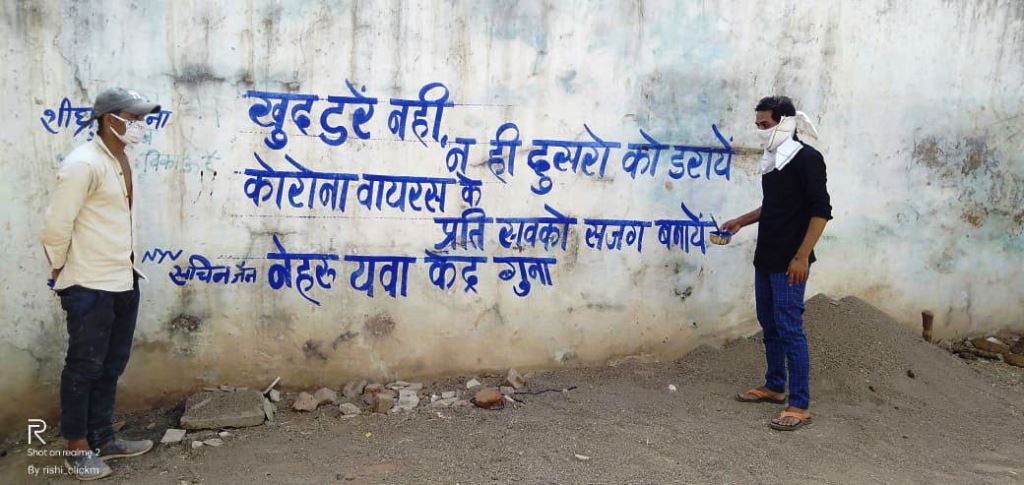 खुद डरें नही,
न ही दुसरो को डरायें
कोरोना वायरस के
प्रति सबको सजग बनायें
NYV सचिन जैन नेहरू यवा केंद्र गुना
शीघ्र
R
Shot on realme 2
By rishi_clickm